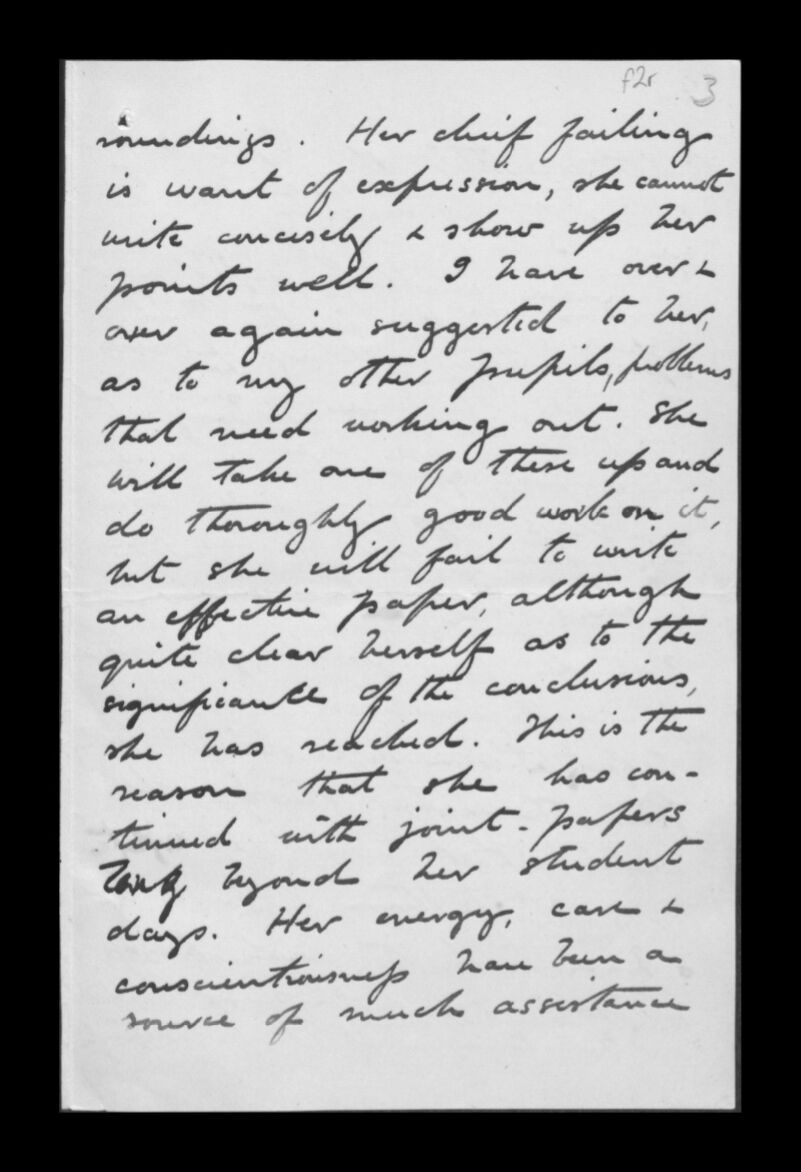 f2r 3
roundings. Her chief failing
is want of expression, she cannot
write concisely & show up her
points well. I have over &
over again suggested to her,
as to my other pupils, problems
that need working out. She
will take one of these up and
do thoroughly good work on it,
but she will fail to write
an effective paper, although
quite clear herself as to the
significance of the conclusions,
she has reached. This is the
reason that she has con-
tinued with joint-papers
long beyond her student
days. Her energy, care &
conscientiousness have been a
source of much assistance